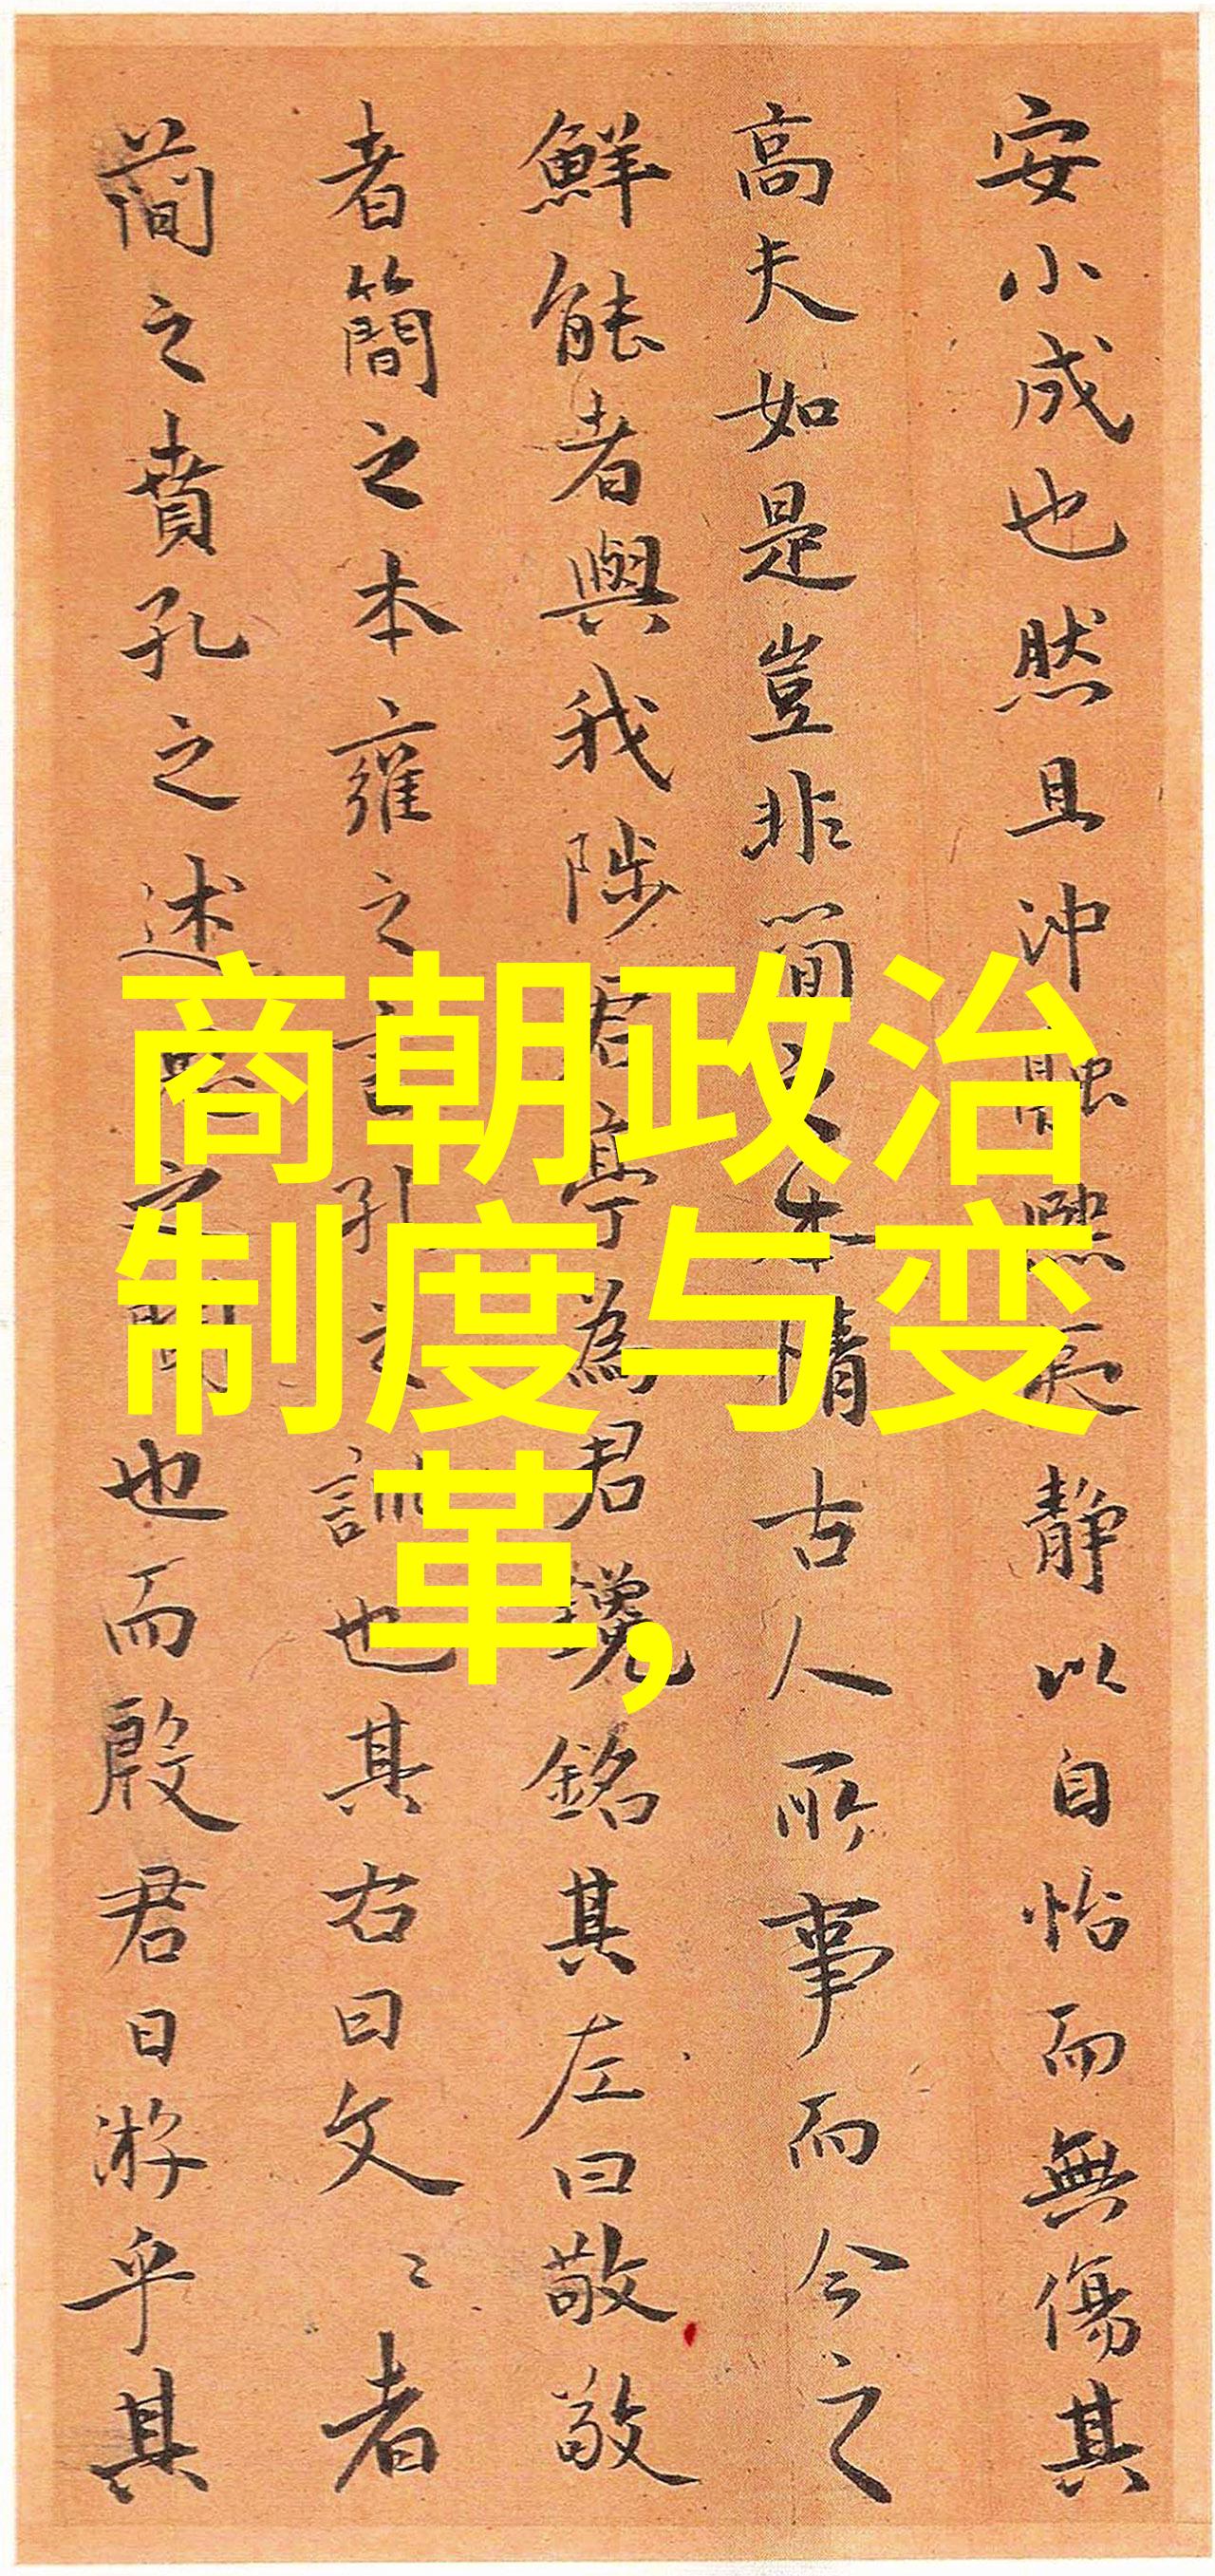 安小成也然且沖融熙怡靜以自怡而無傷其
高夫如是豈非簡之本情古人所事而今之
鮮能者與我陟君亭為君鑱銘其左曰敬敬
者簡之本雍之言孔之訓也其右曰文〻者
蕳之賁孔之述之蕳也而殷君日游乎其
商朝政治
制度与变
革，